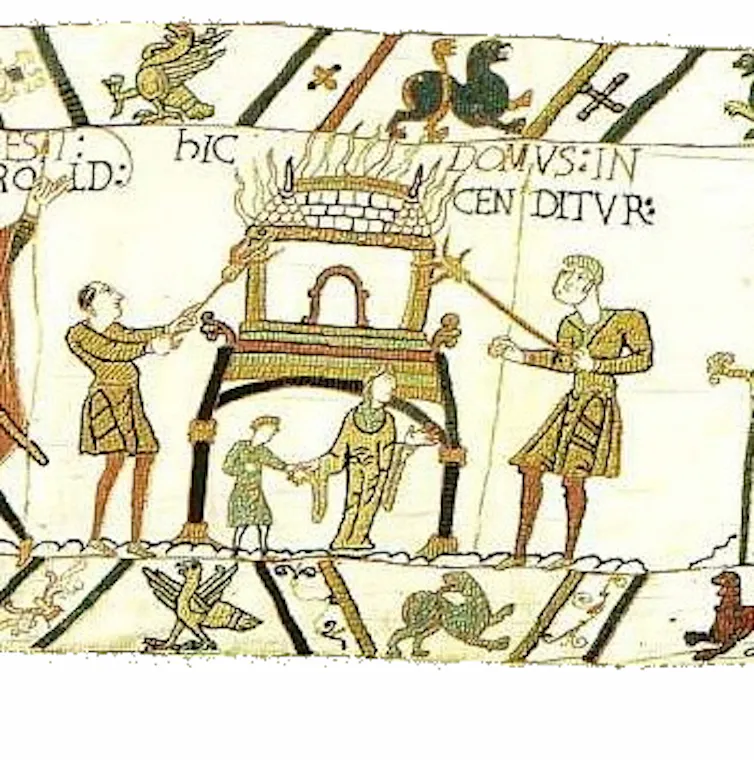 EST:
ROLD:
hIC DOMVS:IN
CENDITVR: